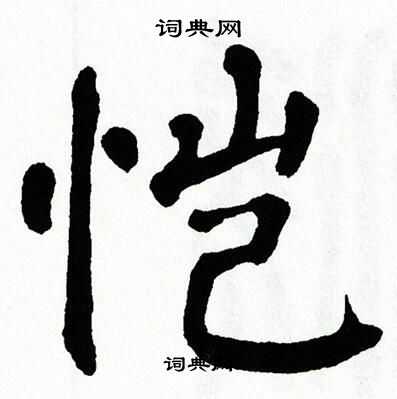 词典网
恺
词典网